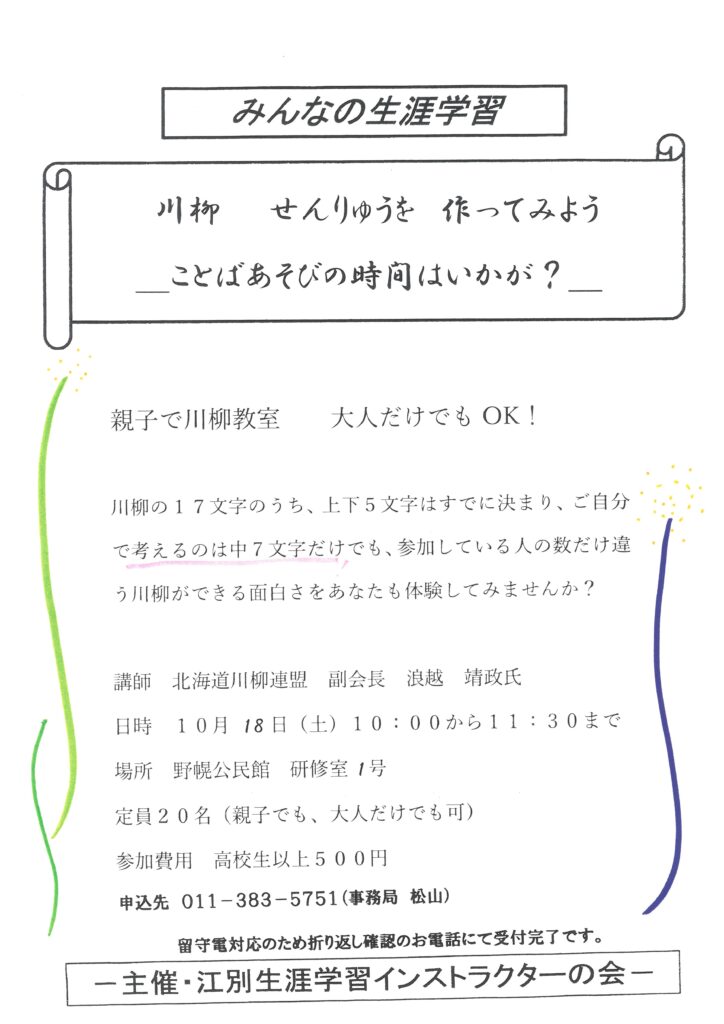 みんなの生涯学習
川柳　せんりゅうを　作ってみよう
＿ことばあそびの時間はいかが？＿
親子で川柳教室　　大人だけでも OK！
川柳の１７文字のうち、上下５文字はすでに決まり、ご自分
で考えるのは中７文字だけでも、参加している人の数だけ違
う川柳ができる面白さをあなたも体験してみませんか？
講師　北海道川柳連盟　副会長　浪越　靖政氏
日時　１０月 18 日（土）１０：００から１１：３０まで
場所　野幌公民館　研修室 1 号
定員２０名（親子でも、大人だけでも可）
参加費用　高校生以上５００円
申込先　011－383－5751(事務局　松山)
留守電対応のため折り返し確認のお電話にて受付完了です。
－主催・江別生涯学習インストラクターの会－